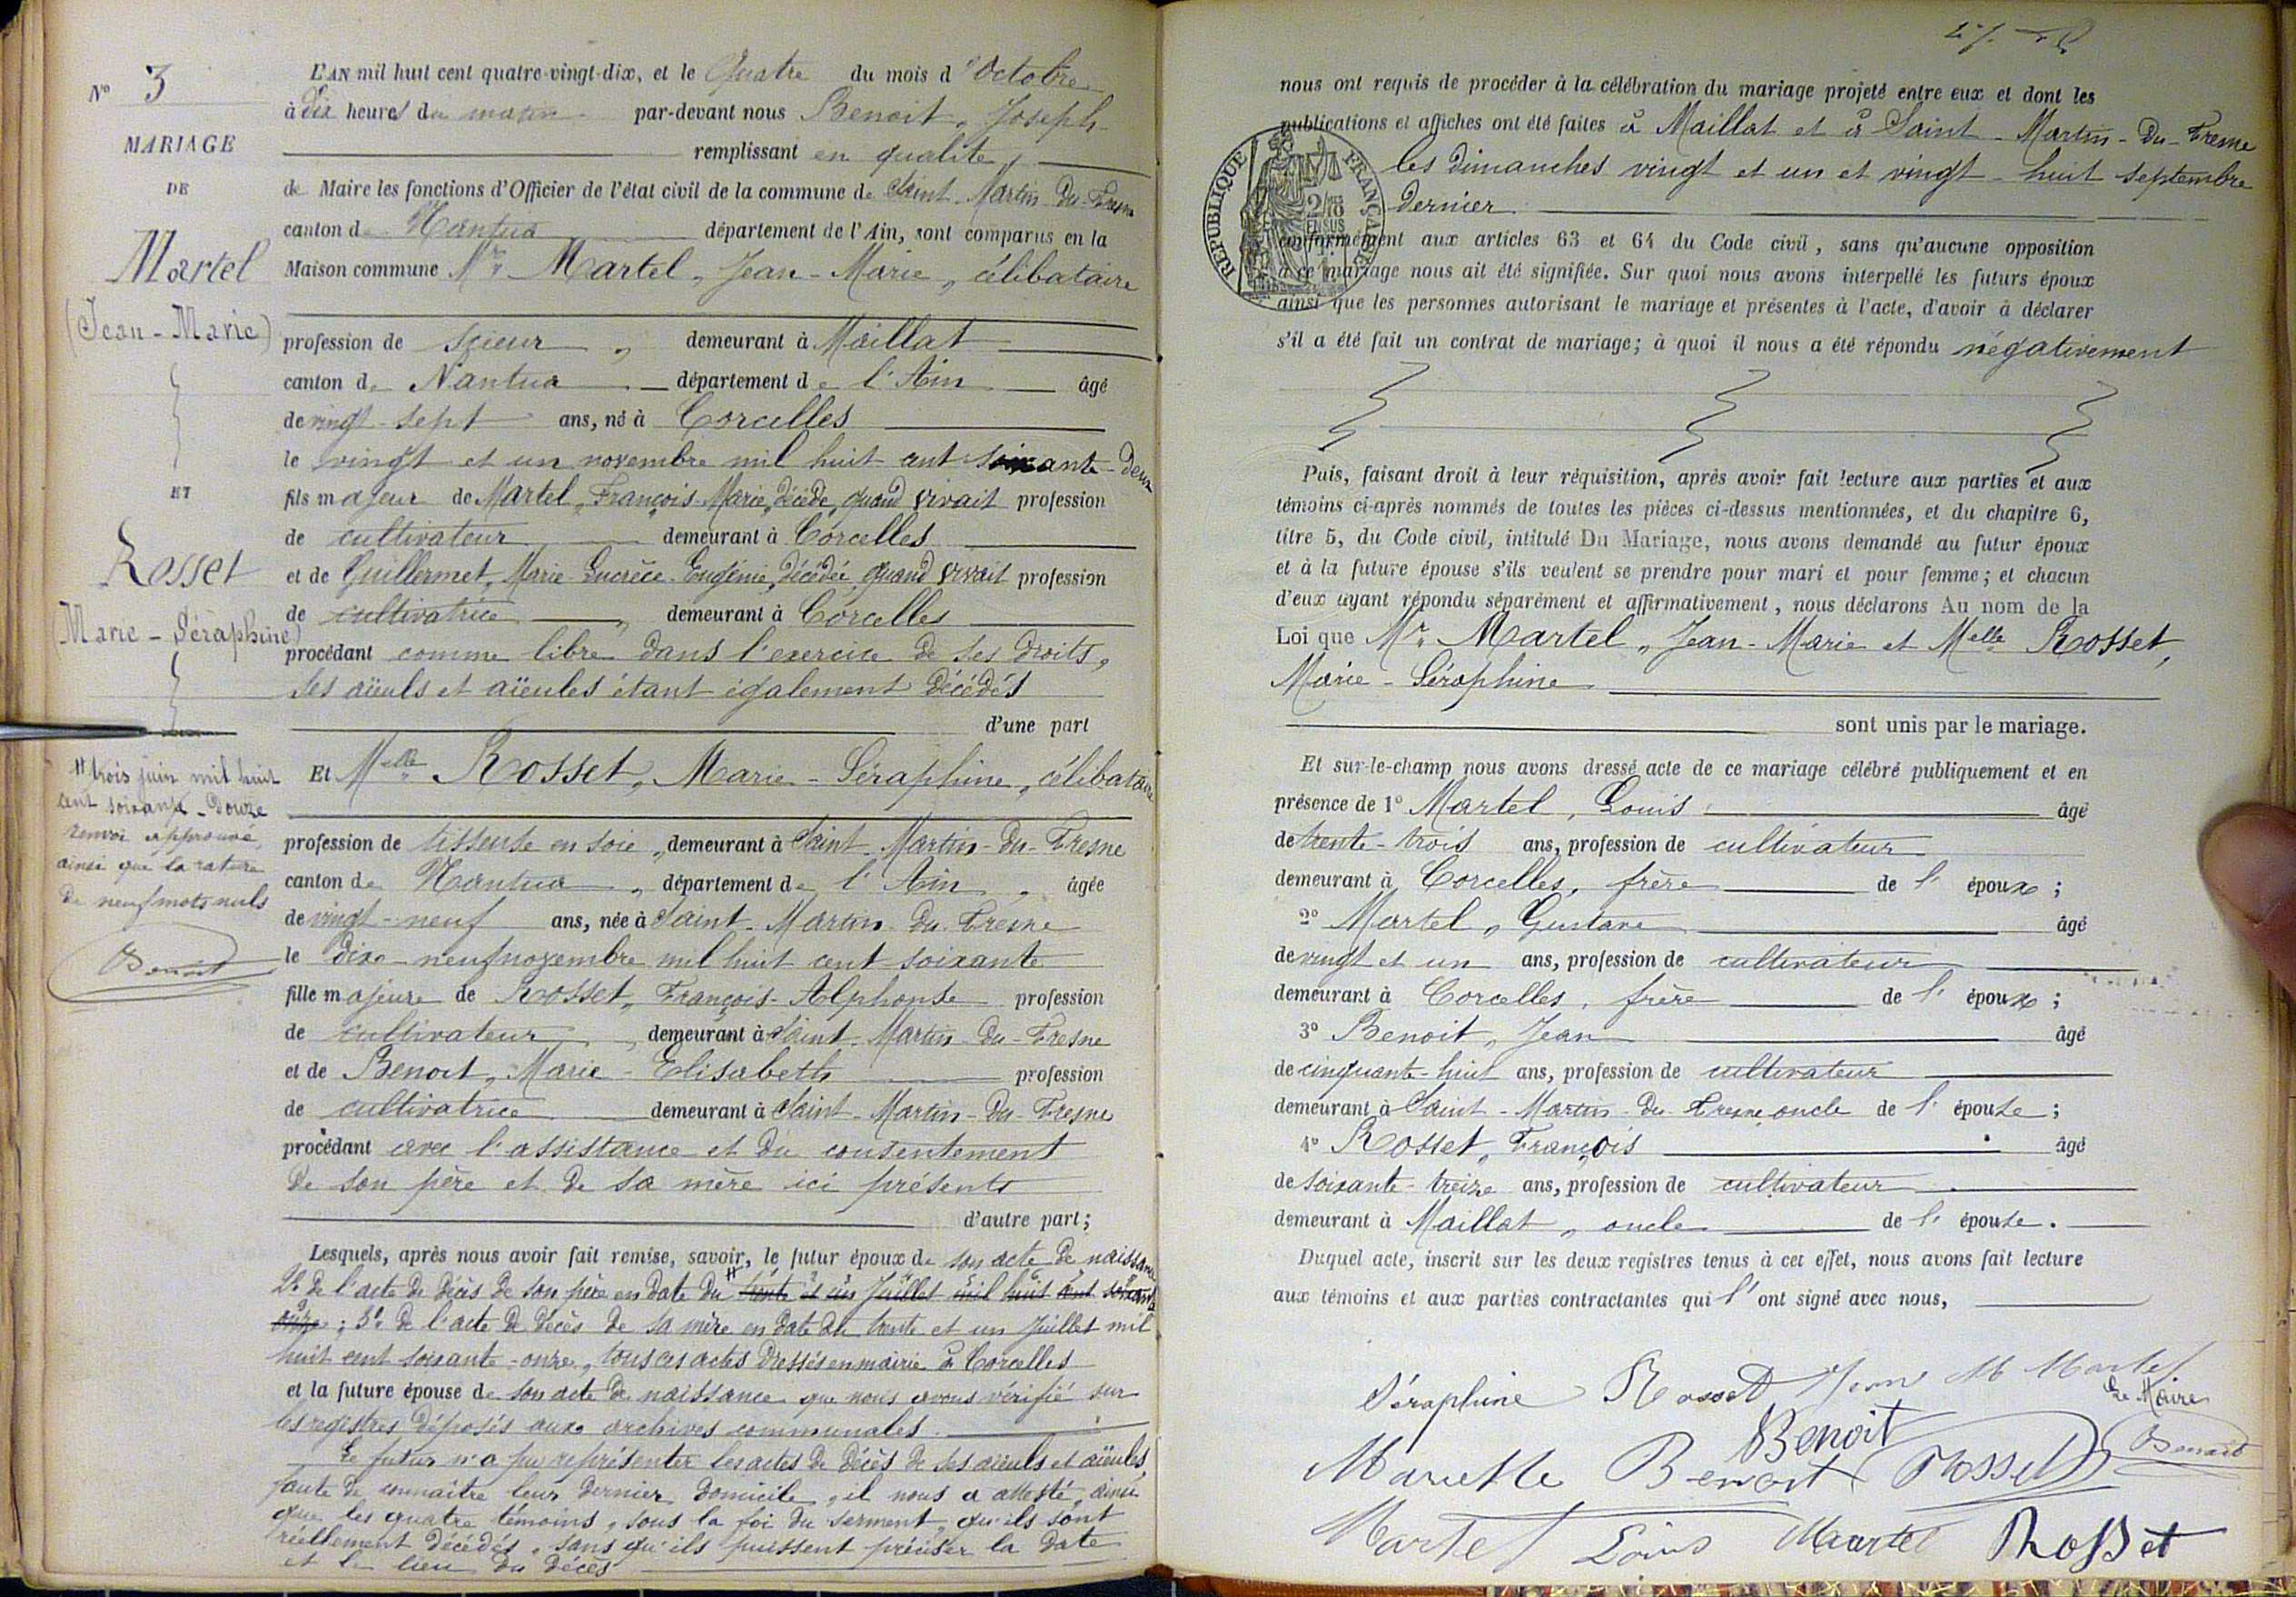 N° 3
MARIAGE
DE
Martel
(Jean-Marie)
ET
Rosset
(Marie-Séraphine)
trois juin mil huit
cent soixante-douze
renvoi approuvé,
ainsi que la rature
de neuf mots nuls
Benoit
L'AN mil huit cent quatre-vingt-dix, et le Quatre du mois d'Octobre
à dix heures du matin par-devant nous Benoit, Joseph
remplissant en qualité
de Maire les fonctions d'Officier de l'état civil de la commune de Saint-Martin-du-Fresne
canton de Nantua département de l'Ain, sont comparus en la
Maison commune Mr Martel, Jean-Marie, célibataire
profession de scieur, demeurant à Maillat
canton de Nantua département de l'Ain âgé
de vingt-sept ans, né à Corcelles
le vingt et un novembre mil huit cent soixante-deux
fils majeur de Martel, François-Marie, décédé, quand vivait profession
de cultivateur demeurant à Corcelles
et de Guillermet, Marie-Lucrèce-Eugénie, décédée, quand vivait profession
de cultivatrice, demeurant à Corcelles
procédant comme libre dans l'exercice de ses droits,
ses aïeuls et aïeules étant également décédés
d'une part
Et Melle Rosset, Marie-Séraphine, célibataire
profession de tisseuse en soie, demeurant à Saint-Martin-du-Fresne
canton de Nantua, département de l'Ain, âgée
de vingt-neuf ans, née à Saint-Martin-du-Fresne
le dix-neuf novembre mil huit cent soixante
fille majeure de Rosset, François-Alphonse profession
de cultivateur, demeurant à Saint-Martin-du-Fresne
et de Benoit, Marie-Elisabeth profession
de cultivatrice demeurant à Saint-Martin-du-Fresne
procédant avec l'assistance et du consentement
de son père et de sa mère ici présents
d'autre part;
Lesquels, après nous avoir fait remise, savoir, le futur époux de son acte de naissance
2° de l'acte de décès de son père en date du trente et un Juillet mil huit cent soixante
onze; 3° de l'acte de décès de sa mère en date du trente et un Juillet mil
huit cent soixante-onze, tous ces actes dressés en mairie à Corcelles
et la future épouse de son acte de naissance que nous avons vérifié sur
les registres déposés aux archives communales.
Le futur n'a pu représenter les actes de décès de ses aïeuls et aïeules,
faute de connaître leur dernier domicile, il nous a attesté, ainsi
que les quatre témoins, sous la foi du serment, qu'ils sont
réellement décédés, sans qu'ils puissent préciser la date
et le lieu du décès
nous ont requis de procéder à la célébration du mariage projeté entre eux et dont les
publications et affiches ont été faites à Maillat et à Saint-Martin-du-Fresne
les dimanches vingt et un et vingt-huit septembre
dernier
RÉPUBLIQUE FRANÇAISE
conformément aux articles 63 et 64 du Code civil, sans qu'aucune opposition
à ce mariage nous ait été signifiée. Sur quoi nous avons interpellé les futurs époux
ainsi que les personnes autorisant le mariage et présentes à l'acte, d'avoir à déclarer
s'il a été fait un contrat de mariage; à quoi il nous a été répondu négativement
Puis, faisant droit à leur réquisition, après avoir fait lecture aux parties et aux
témoins ci-après nommés de toutes les pièces ci-dessus mentionnées, et du chapitre 6,
titre 5, du Code civil, intitulé Du Mariage, nous avons demandé au futur époux
et à la future épouse s'ils veulent se prendre pour mari et pour femme; et chacun
d'eux ayant répondu séparément et affirmativement, nous déclarons Au nom de la
Loi que Mr Martel, Jean-Marie et Melle Rosset,
Marie-Séraphine
sont unis par le mariage.
Et sur-le-champ nous avons dressé acte de ce mariage célébré publiquement et en
présence de 1° Martel, Louis âgé
de trente-trois ans, profession de cultivateur
demeurant à Corcelles, frère de l'époux;
2° Martel, Gustave âgé
de vingt et un ans, profession de cultivateur
demeurant à Corcelles, frère de l'époux;
3° Benoit, Jean âgé
de cinquante-huit ans, profession de cultivateur
demeurant à Saint-Martin-du-Fresne oncle de l'épouse;
4° Rosset, François âgé
de soixante-treize ans, profession de cultivateur
demeurant à Maillat, oncle de l'épouse.
Duquel acte, inscrit sur les deux registres tenus à cet effet, nous avons fait lecture
aux témoins et aux parties contractantes qui l'ont signé avec nous,
Séraphine Rosset Jean M Martel
Le Maire
Benoit
Mariette Benoit Rosset Benoit
Martel Louis Martel Rosset